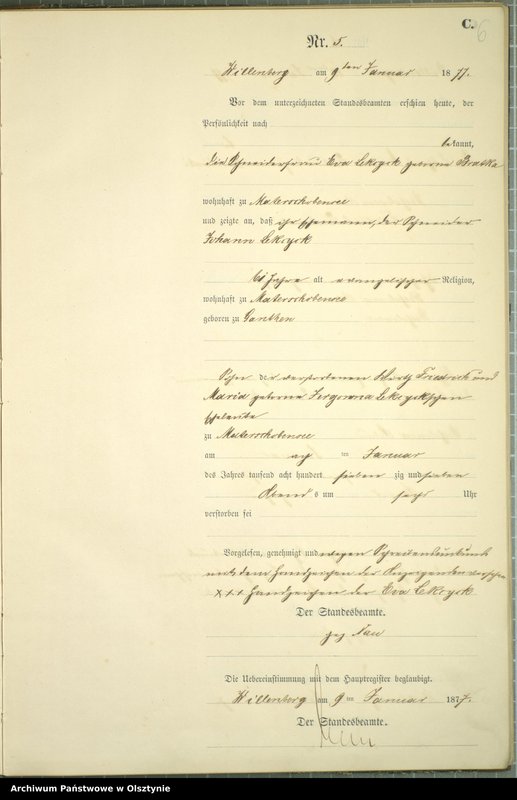 C.
6
Nr. 5.
Willenberg am 9ten Januar 1877.
Vor dem unterzeichneten Standesbeamten erschien heute, der
Persönlichkeit nach
bekannt,
die Schneiderfrau Eva Lekzyck geborne Bratka
wohnhaft zu Materschobensee
und zeigte an, daß ihr Ehemann, der Schneider
Johann Lekzyck
61 Jahre alt evangelischer Religion,
wohnhaft zu Materschobensee
geboren zu Ganthen
Sohn der verstorbenen Friedrich und
Maria geborne Lekzyckschen
Eheleute
zu Materschobensee
am ach ten Januar
des Jahres tausend acht hundert sieben zig und sieben
Abend s um sechs Uhr
verstorben sei
Vorgelesen, genehmigt und wegen Schreibensunkunde
mit dem Handzeichen der Anzeigenden versehen
+++ Handzeichen der Eva Lekzyck
Der Standesbeamte.
gez Nau
Die Uebereinstimmung mit dem Hauptregister beglaubigt.
Willenberg am 9 ten Januar 1877.
Der Standesbeamte.
Archiwum Państwowe w Olsztynie